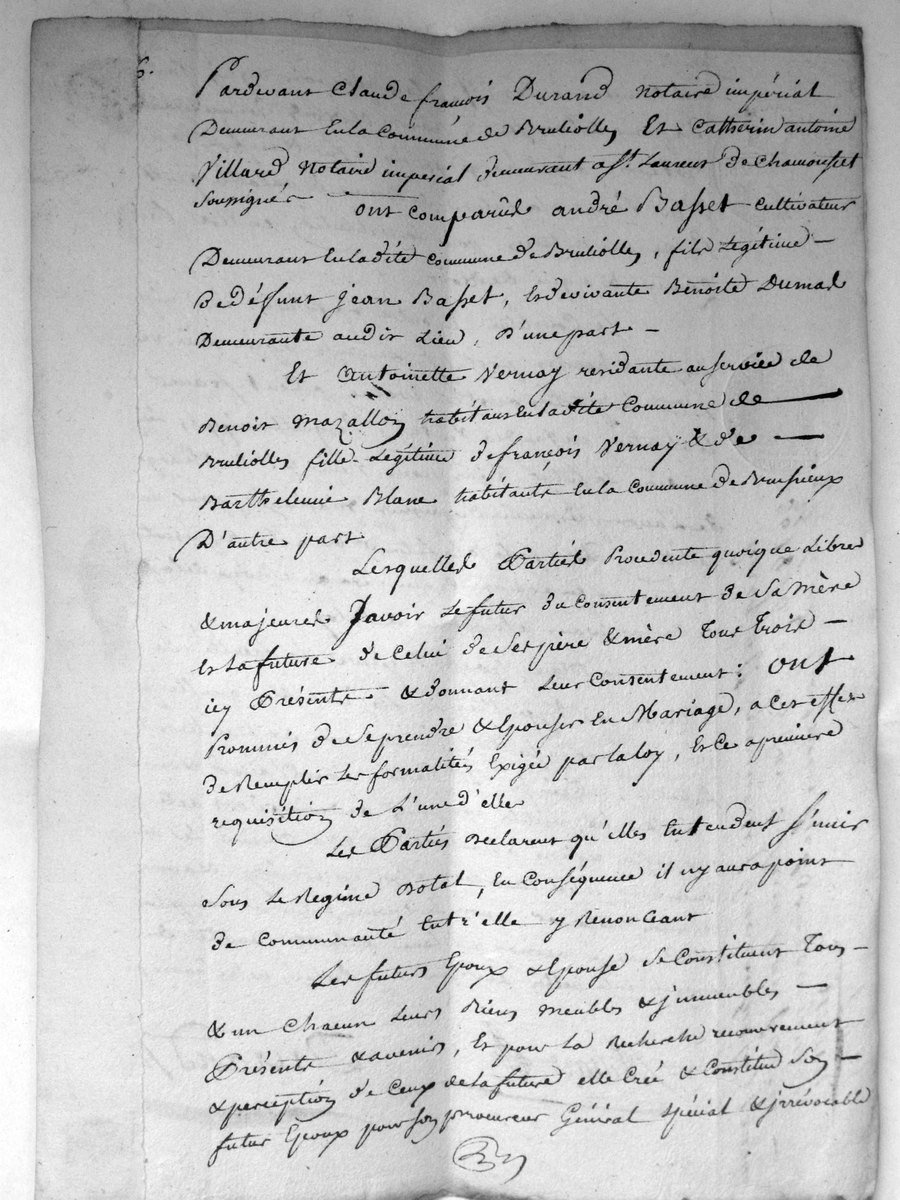 Pardevant Claude françois Durand Notaire impérial
Demeurant En la Commune de Brulliolles Et Catherin antoine
Villard Notaire imperial demeurant a St. Laurent de Chamousset
soussignés —
ont comparûs andré Basset cultivateur
Demeurant En la dite Commune de Brulliolles, fils Légitime —
De défunt jean Basset, Et de vivante Benoite Dumas
Demeurante audit Lieu, D'une part —
Et antoinette Vernay residante au service de
Benoit Mazallon habitant En la dite Commune de —
Brulliolles fille Légitime de françois Vernay & de —
Barthelemie Blanc habitants En la Commune de Brussieux
D'autre part
Lesquelles Parties Procedente quoique Libres
& majeures Savoir Le futur du Consentement de Sa Mère
Et La future de Celui de Ses père & mère Tous Trois —
icy Présents & donnant Leur Consentement : ont
Prommis de Se prendre & Epouser En Mariage, a Cet effet
de Remplir Les formalités Exigée par la loy, Et Ce a premiere
requisition de L'une d'elle
Les Parties Declarent qu'Elles Entendent S'unir
Sous Le Regime Dotal, En Conséquence il ny aura point
de Communauté Entr'elle y Renonceant
Les futurs Epoux & Epouse Se Constituent Tous —
& un Chacun Leurs Biens meubles & jmmeubles —
Présents & avenirs, Et pour La Recherche recouvrement
& perception de Ceux de la future elle Créé & Constitue Son —
futur Epoux pour Son procureur Général spécial & jrrévocable